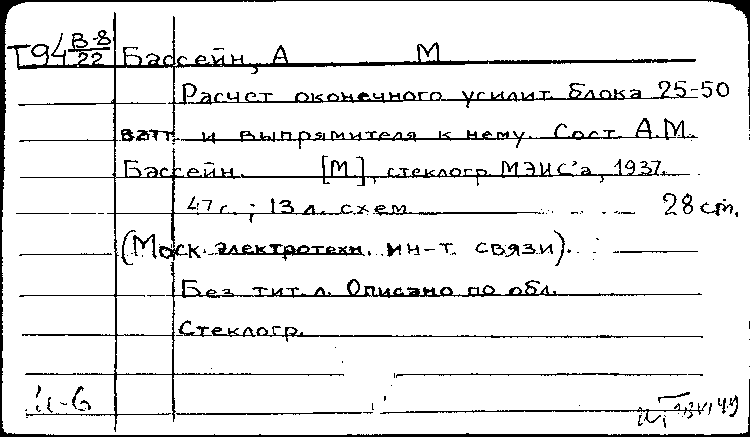 Т94 В-8/22 Бассейн, А М
Расчет оконечного усилит. блока 25-50
ватт и выпрямителя к нему. Сост. А.М.
Бассейн. [М.], стеклогр. МЭИС'а, 1937.
47 с.; 13 л. схем 28 cm.
(Моск. электротехн. ин-т связи).
Без тит. л. Описано по обл.
Стеклогр.